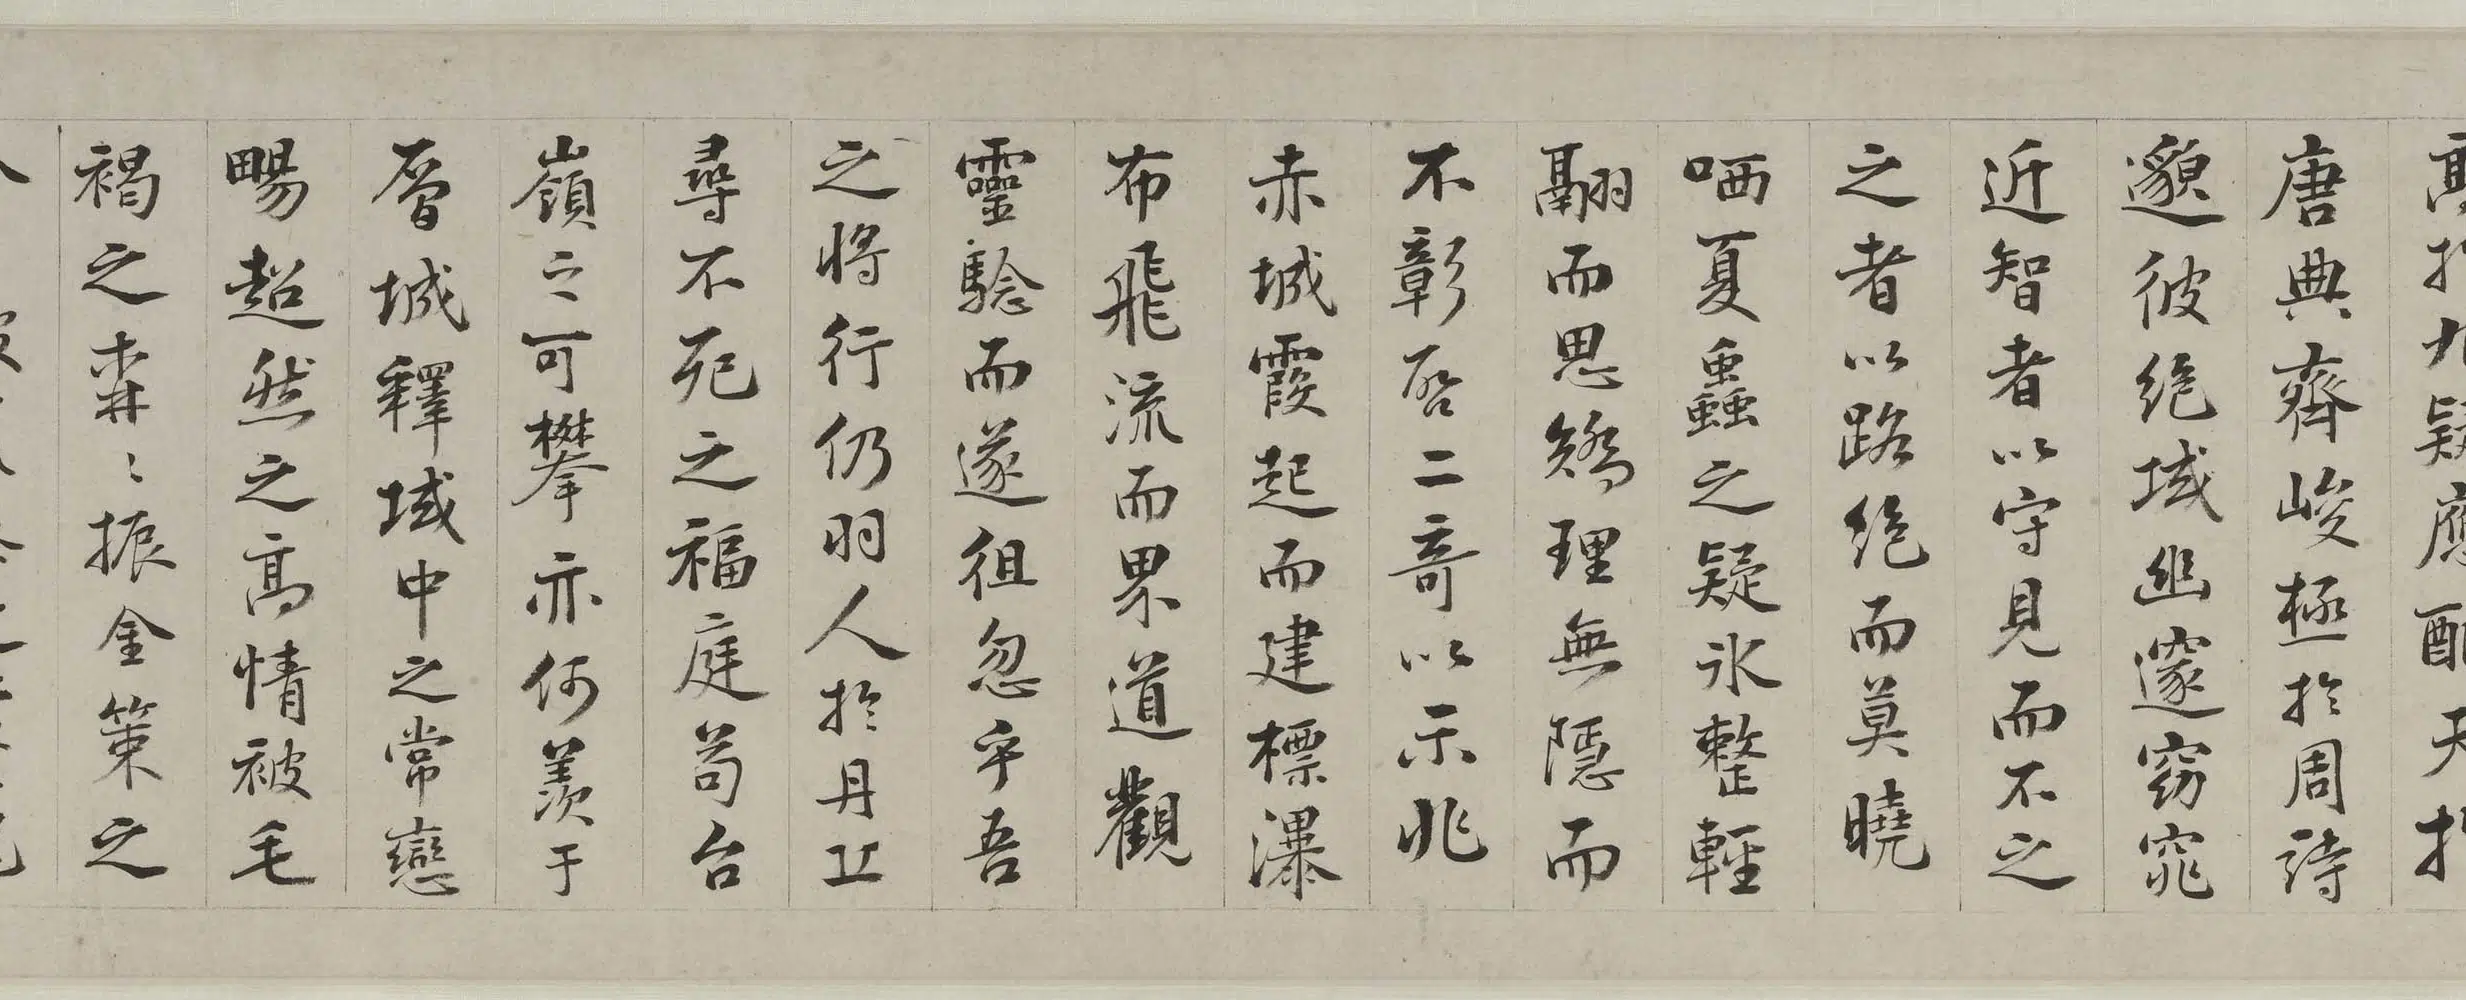 高於九疑應配天於
唐典齊峻極於周詩
邈彼絶域幽邃窈窕
近智者以守見而不之
之者以路絶而莫曉
哂夏蟲之疑冰整輕
翮而思矯理無隱而
不彰启二奇以示兆
赤城霞起而建標瀑
布飛流而界道觀
靈驗而遂徂忽乎吾
之將行仍羽人於丹丘
尋不死之福庭苟台
嶺之可攀亦何羨于
層城釋域中之常戀
暢超然之高情被毛
褐之森〻振金策之